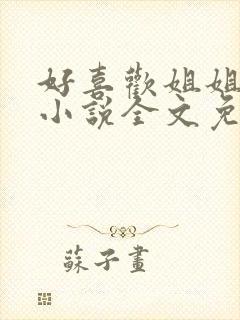 好喜歡姐姐
小說全文免
蘇子畫